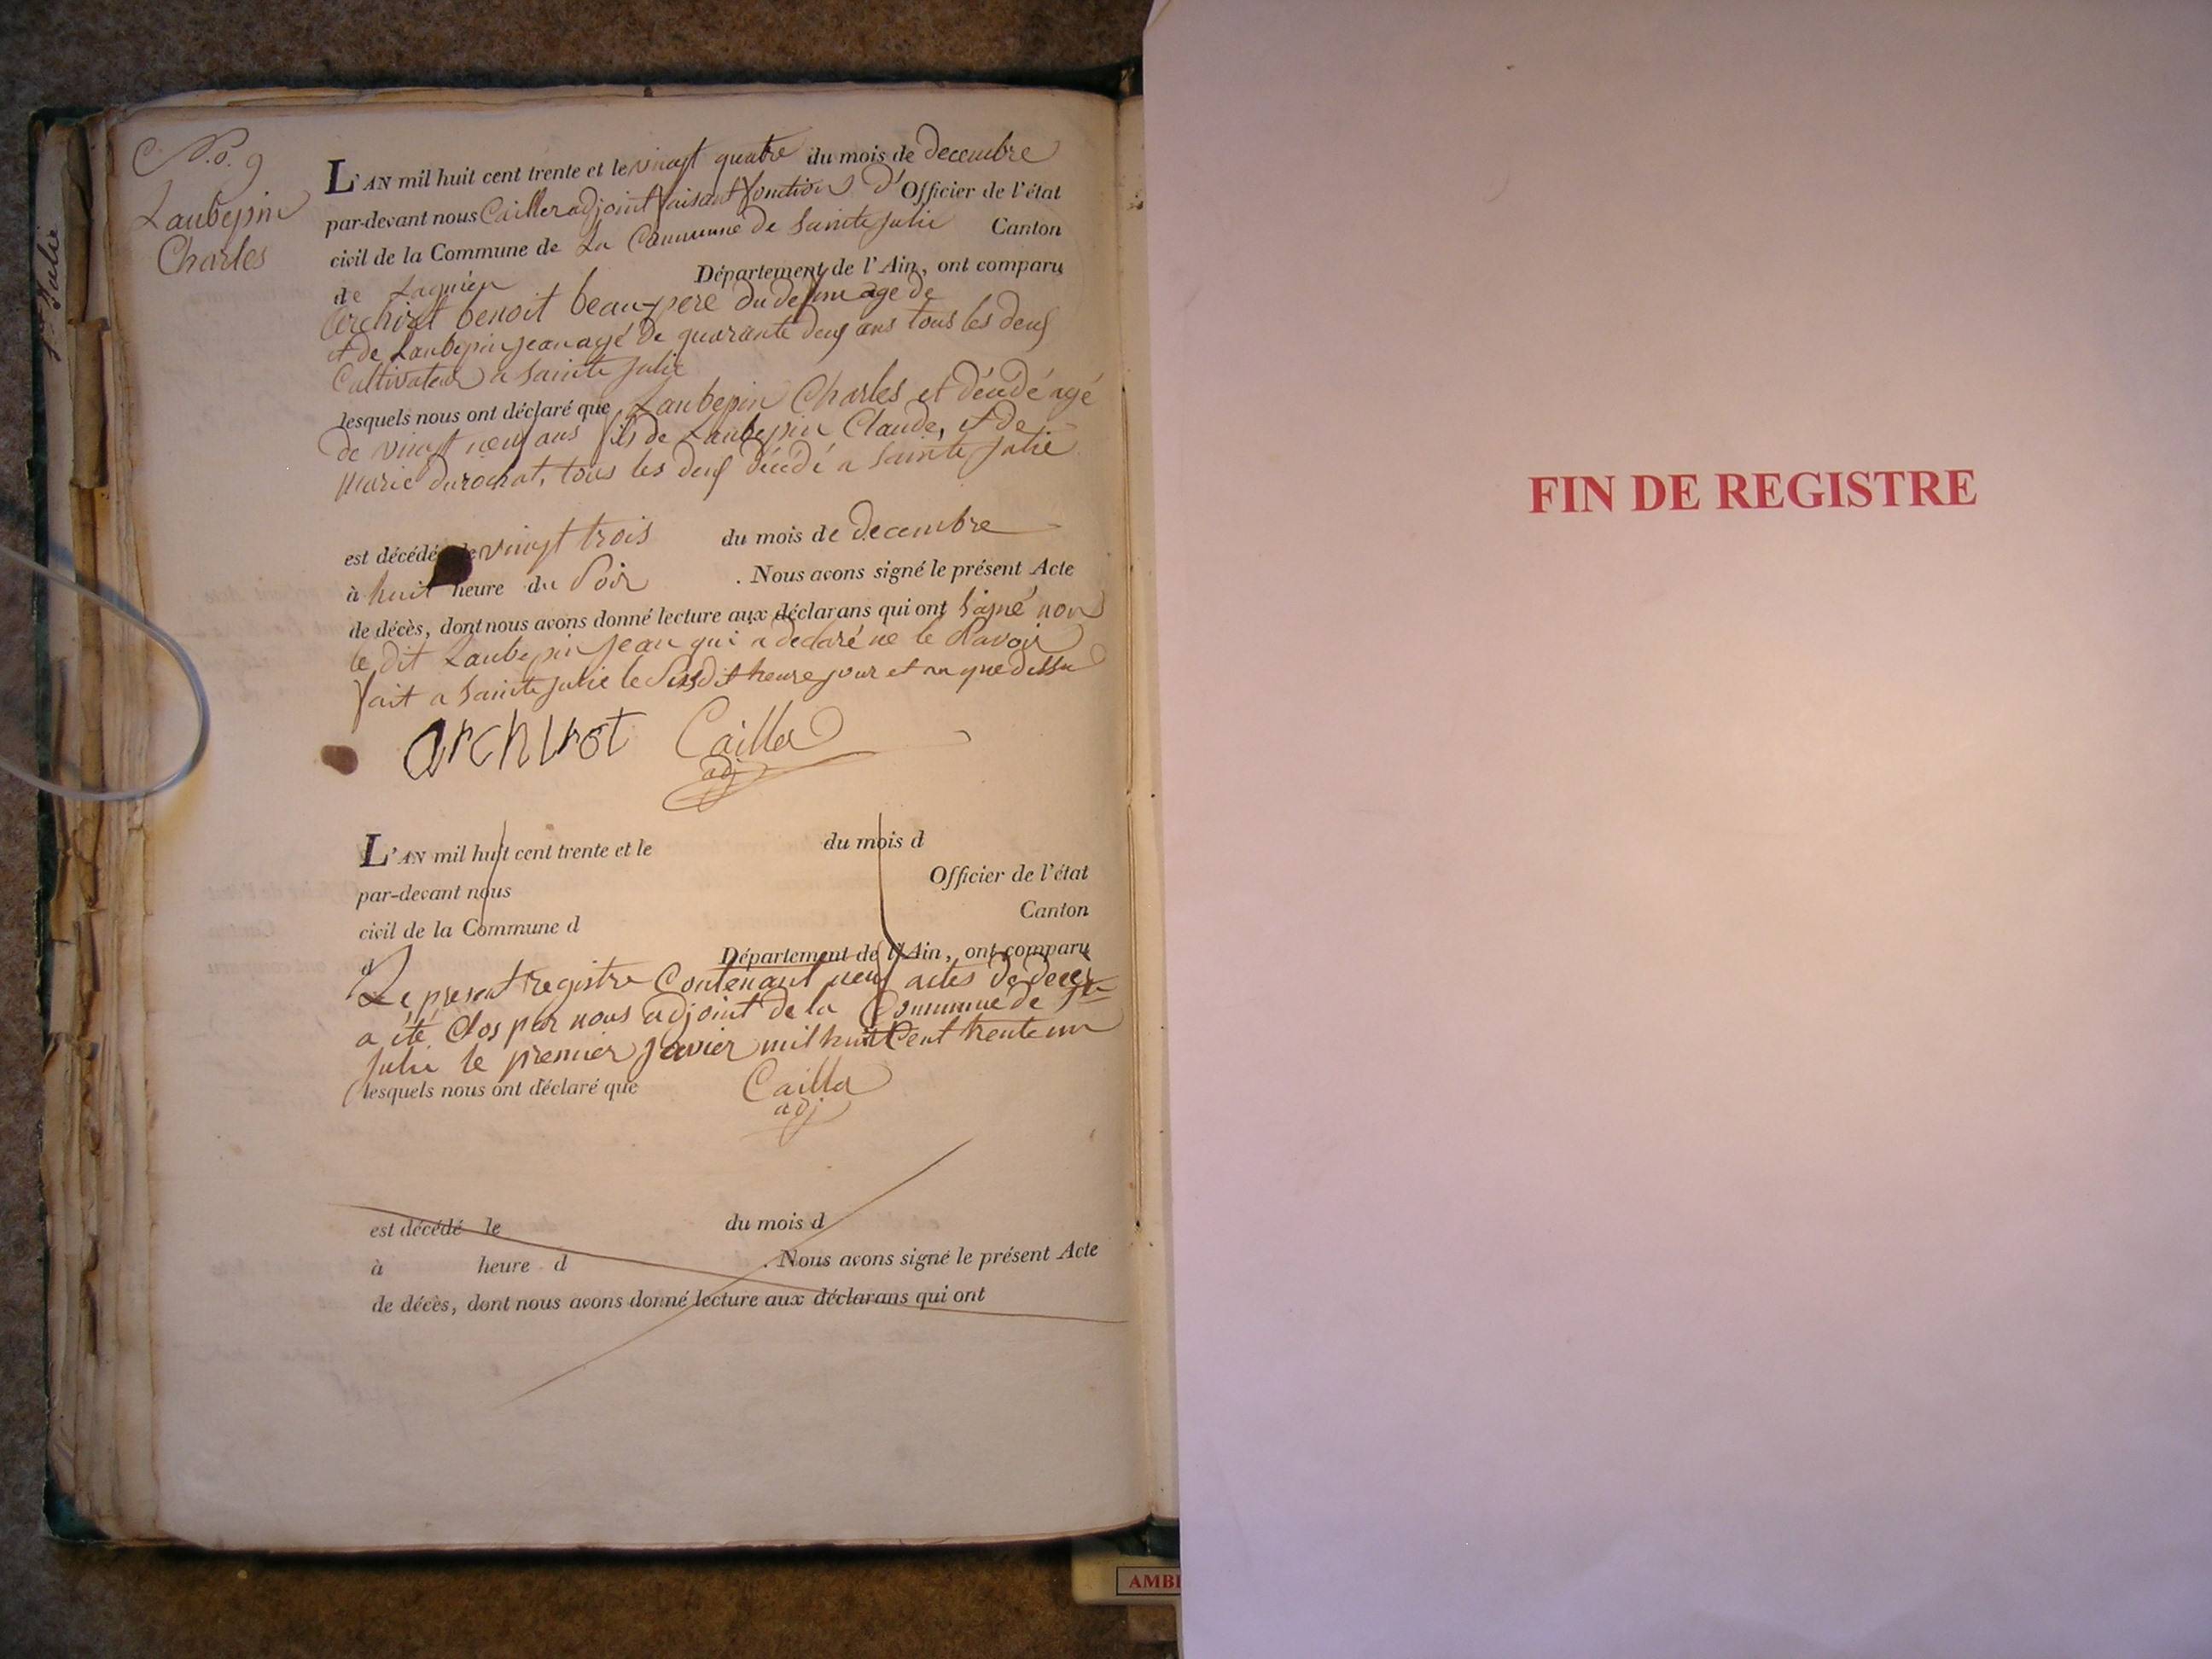 Ste Julie
No. 9
Laubepin
Charles
L'AN mil huit cent trente et le vingt quatre du mois de decembre
par-devant nous Cailler adjoint faisant fonctions d'Officier de l'état
civil de la Commune de La Commune de Sainte Julie Canton
de Lagnieu Département de l'Ain, ont comparu
benoit beau-pere du age de
et de Laubepin jean agé de quarante deux ans tous les deux
Cultivateur a Sainte Julie
lesquels nous ont déclaré que Laubepin Charles et décédé agé
de vingt neuf ans fils de Laubepin Claude, et de
Marie durochat, tous les deux décédé a Sainte Julie
est décédé le vingt trois du mois de decembre
à huit heure du Soir . Nous avons signé le présent Acte
de décès, dont nous avons donné lecture aux déclarans qui ont signé non
le dit Laubepin Jean qui a declaré ne le Savoir
fait a Sainte Julie le Susdit heure jour et an que dessu
archirot Cailler
adj
L'AN mil huit cent trente et le du mois d
par-devant nous Officier de l'état
civil de la Commune d Canton
d Département de l'Ain, ont comparu
Le present registre Contenant neuf actes de deces
a été Clos par nous adjoint de la Commune de Ste
Julie le premier janvier mil huit Cent trente un
lesquels nous ont déclaré que Cailler
adj
est décédé le du mois d
à heure d . Nous avons signé le présent Acte
de décès, dont nous avons donné lecture aux déclarans qui ont
FIN DE REGISTRE
AMBE